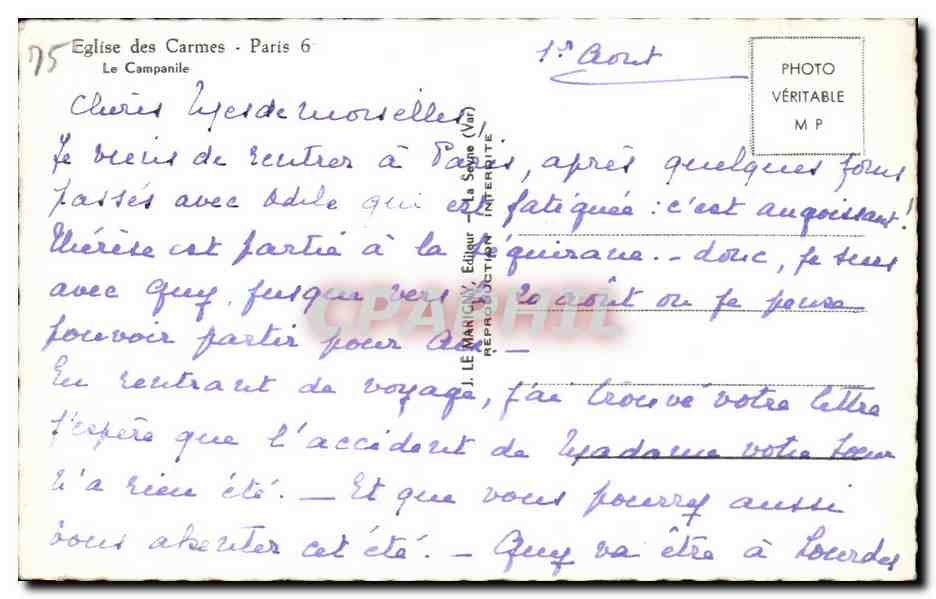 75
Eglise des Carmes - Paris 6
Le Campanile
1er Aout
PHOTO
VÉRITABLE
M P
Chères Mesdemoiselles,
Je viens de rentrer à Paris, après quelques jours
passés avec Odile qui est fatiguée : c'est angoissant!
Thérèse est partie à la . - donc, je suis
avec Guy, jusque vers le 20 août où je pense
pouvoir partir pour —
En rentrant de voyage, j'ai trouvé votre lettre
J'espère que l'accident de Madame votre Soeur
n'a rien été. — Et que vous pourrez aussi
vous absenter cet été. - Guy va être à Lourdes
J. LE MARIGNY, Editeur - La Seyne (Var)
REPRODUCTION INTERDITE
CPAPHIL